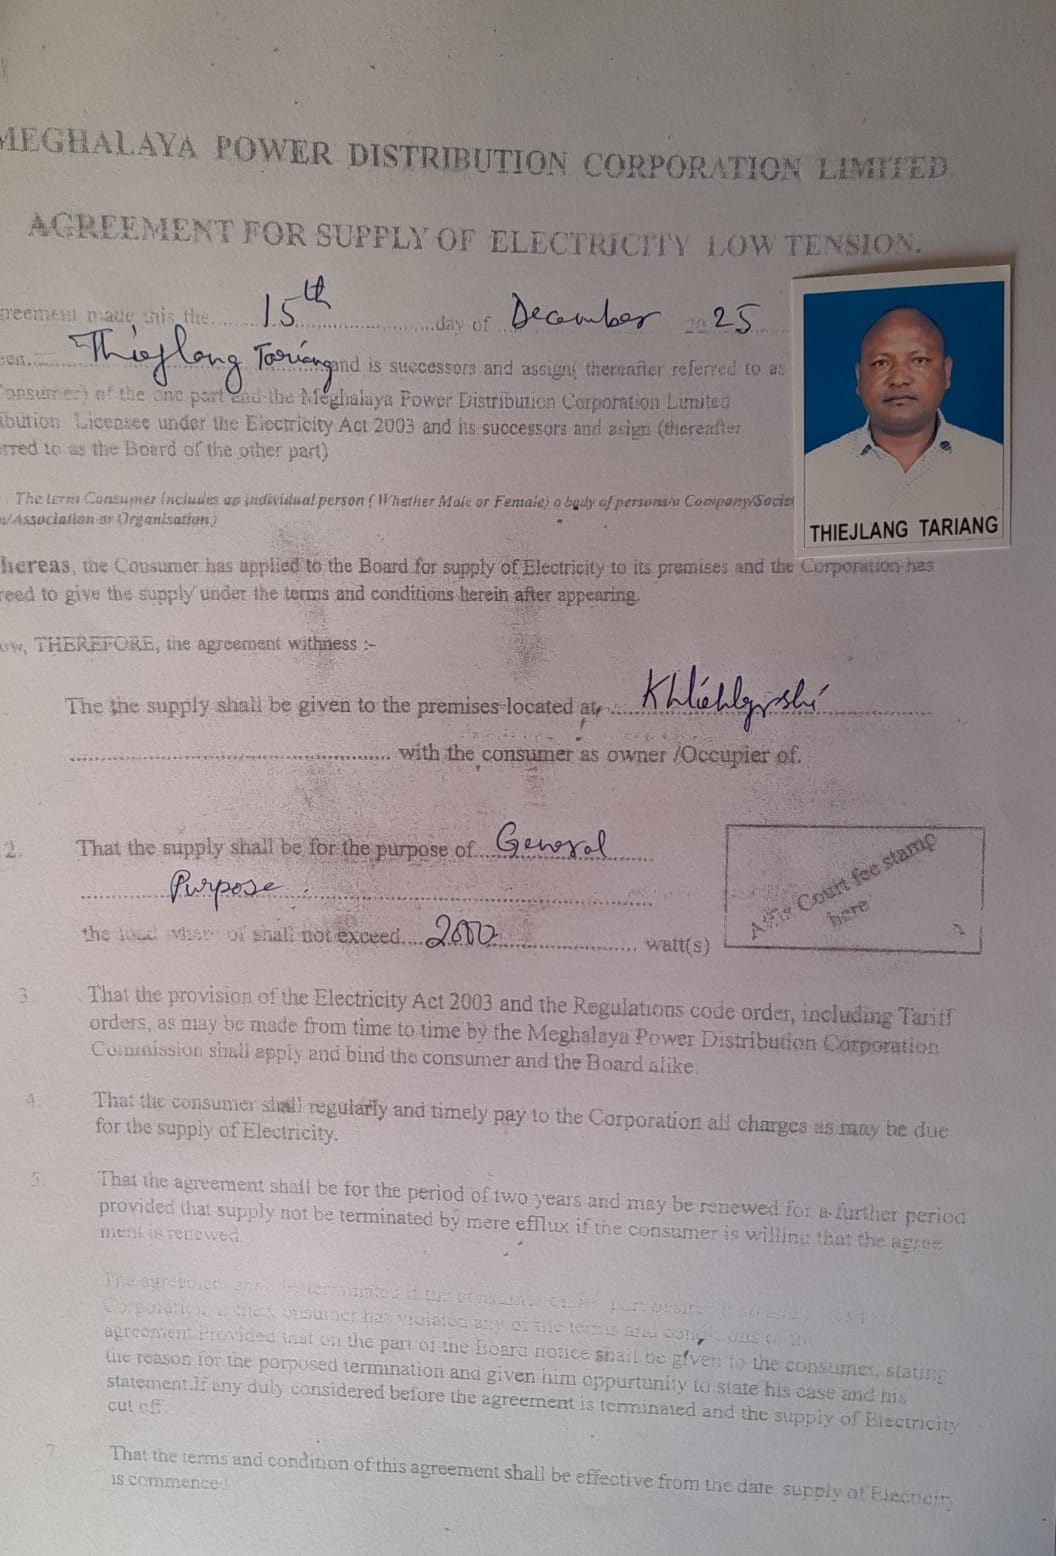 MEGHALAYA POWER DISTRIBUTION CORPORATION LIMITED
AGREEMENT FOR SUPPLY OF ELECTRICITY LOW TENSION.
greement made this the........15th........................day of ..December.... 2025......
een........Thiejlang Tariang and is successors and assign( thereafter referred to as
Consumer) of the one part and the Meghalaya Power Distribution Corporation Limited
ibution Licensee under the Electricity Act 2003 and its successors and asign (thereafter
rred to as the Board of the other part)
The term Consumer includes an individual person ( Whether Male or Female) a body of persons/a Company/Societ
/Association or Organisation)
THIEJLANG TARIANG
hereas, the Consumer has applied to the Board for supply of Electricity to its premises and the Corporation has
reed to give the supply under the terms and conditions herein after appearing.
ow, THEREFORE, the agreement witness :-
The the supply shall be given to the premises located at,
with the consumer as owner /Occupier of.
2. That the supply shall be for the purpose of....General........
Purpose.
the load where of shall not exceed....2000.......................... watt(s)
Affix Court fee stamp
here
3. That the provision of the Electricity Act 2003 and the Regulations code order, including Tariff
orders, as may be made from time to time by the Meghalaya Power Distribution Corporation
Commission shall apply and bind the consumer and the Board alike.
4. That the consumer shall regularly and timely pay to the Corporation all charges as may be due
for the supply of Electricity.
5. That the agreement shall be for the period of two years and may be renewed for a further period
provided that supply not be terminated by mere efflux if the consumer is willing that the agree
ment is renewed.
The agreement shall be terminated if the consumer on
Corporation if the Consumer has violated any of the terms and conditions of
agreement Provided that on the part of the Board notice shall be given to the consumer, stating
the reason for the porposed termination and given him oppurtunity to state his case and his
statement.If any duly considered before the agreement is terminated and the supply of Electricity
cut off.
7. That the terms and condition of this agreement shall be effective from the date supply of Electricity
is commenced